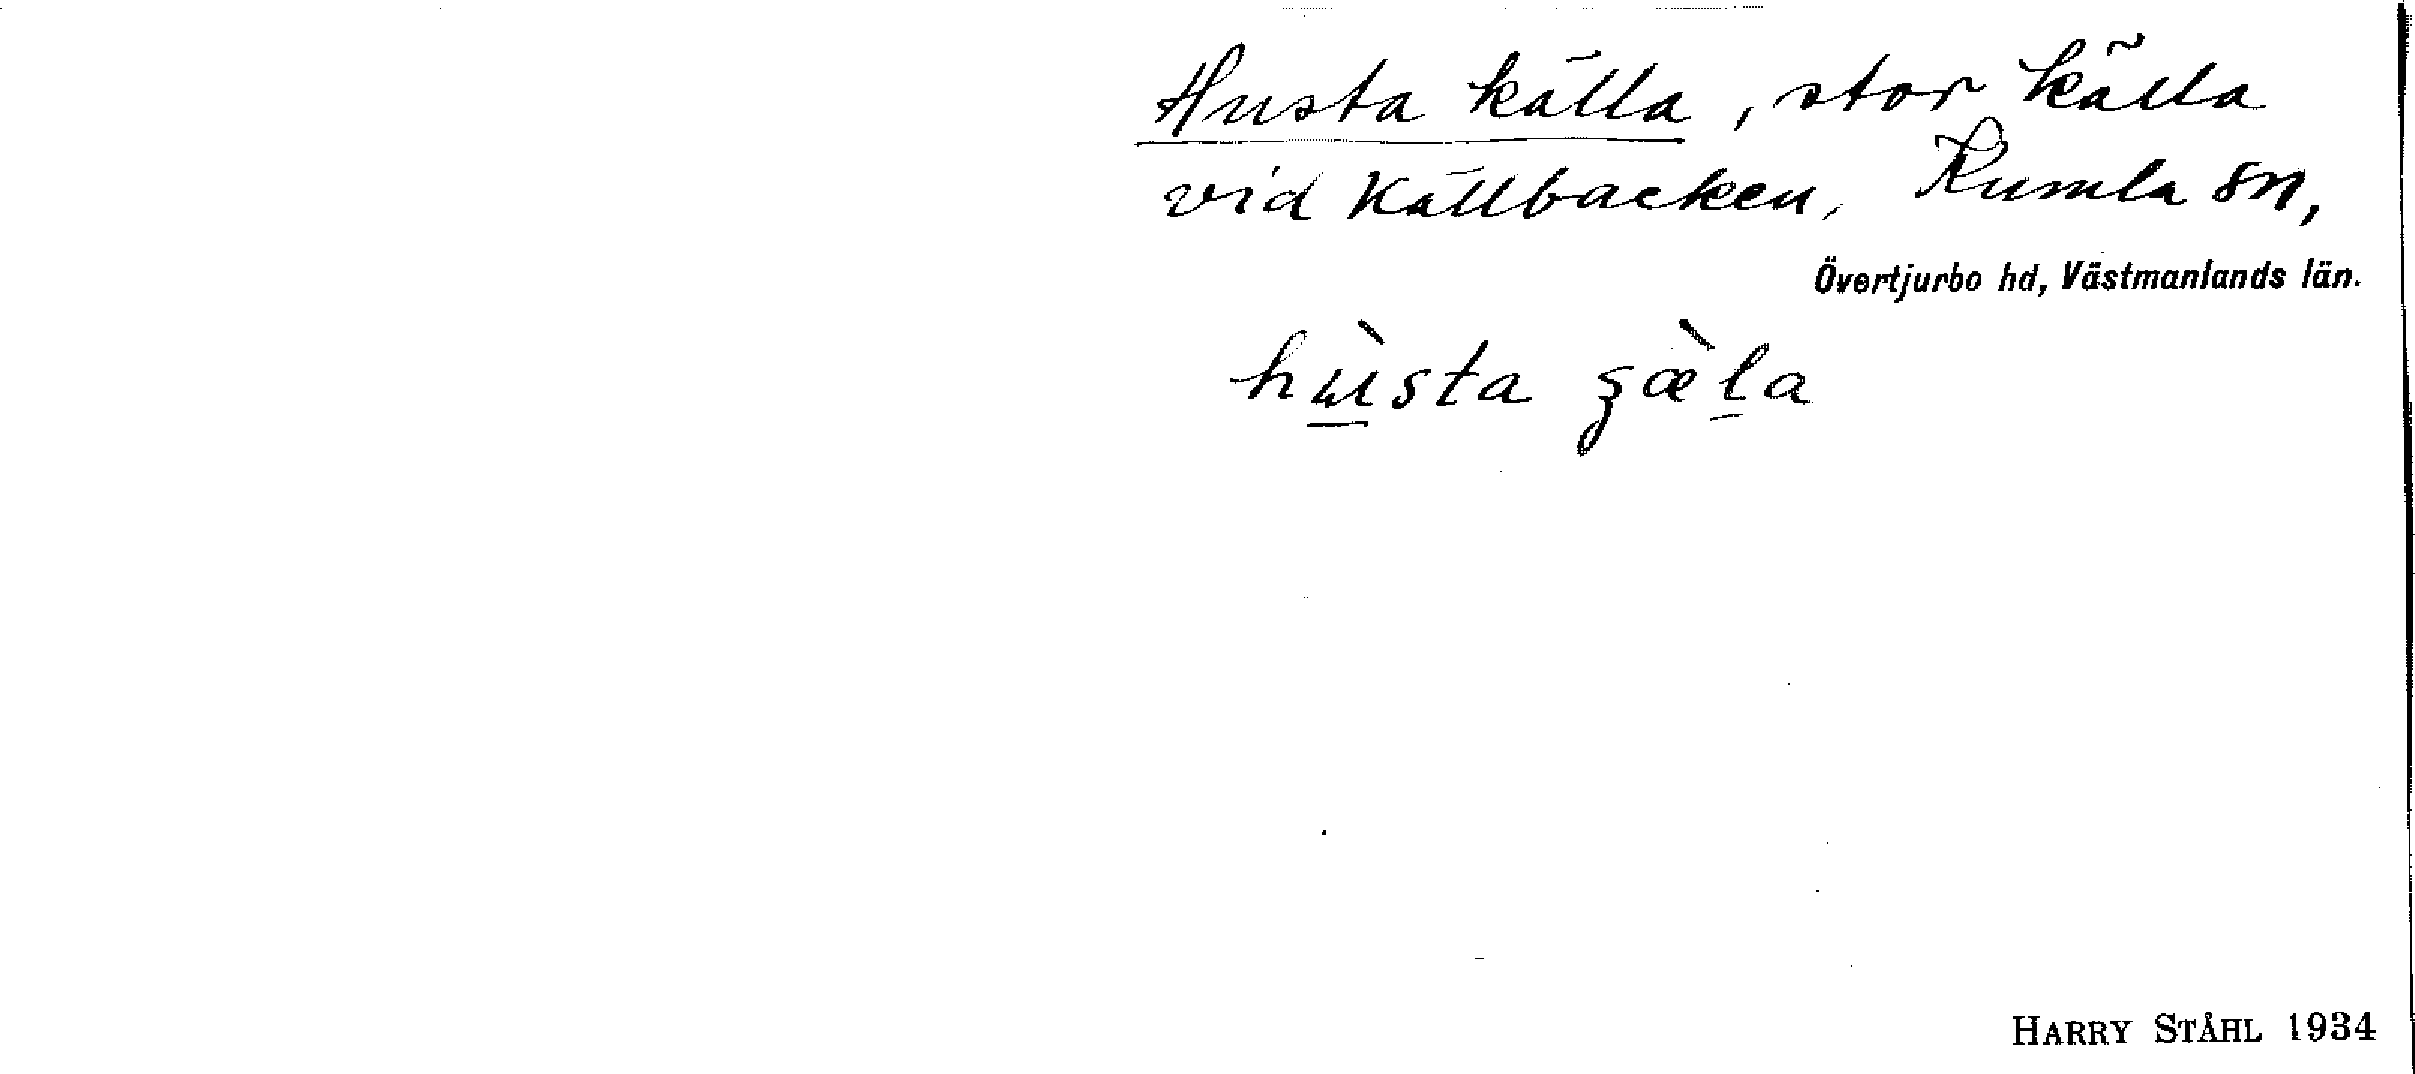 Husta källa, stor källa
vid Källbacken, Kumla sn,
Övertjurbo hd, Västmanlands län.
hùsta ʂæ̀la
HARRY STÅHL 1934